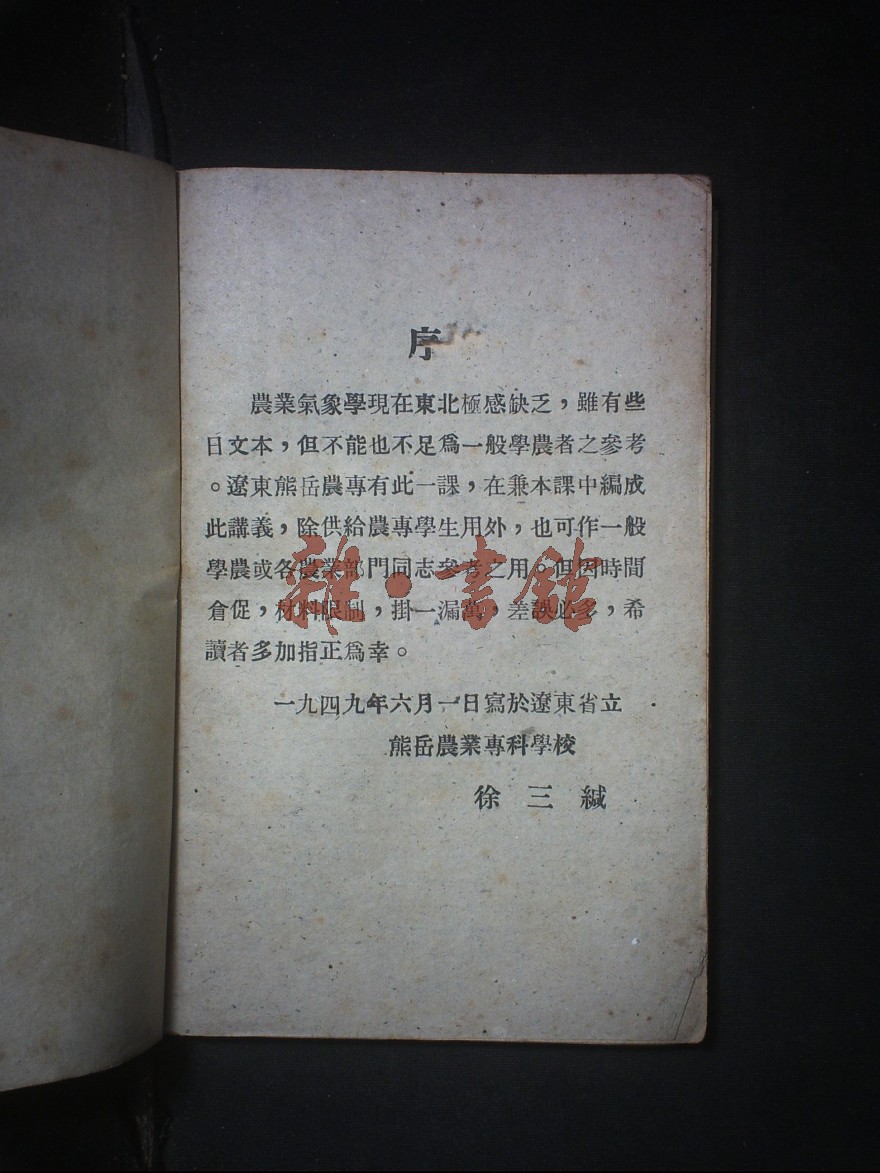 序
農業氣象學現在東北極感缺乏，雖有些
日文本，但不能也不足爲一般學農者之參考
。遼東熊岳農專有此一課，在兼本課中編成
此講義，除供給農專學生用外，也可作一般
學農或各農業部門同志參考之用。但因時間
倉促，材料限制，掛一漏萬，差誤必多，希
讀者多加指正爲幸。
一九四九年六月一日寫於遼東省立
熊岳農業專科學校
徐三緘
雜·書館